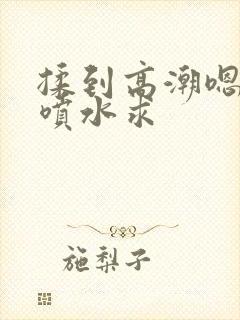 揉到高潮嗯
噴水求
施梨子